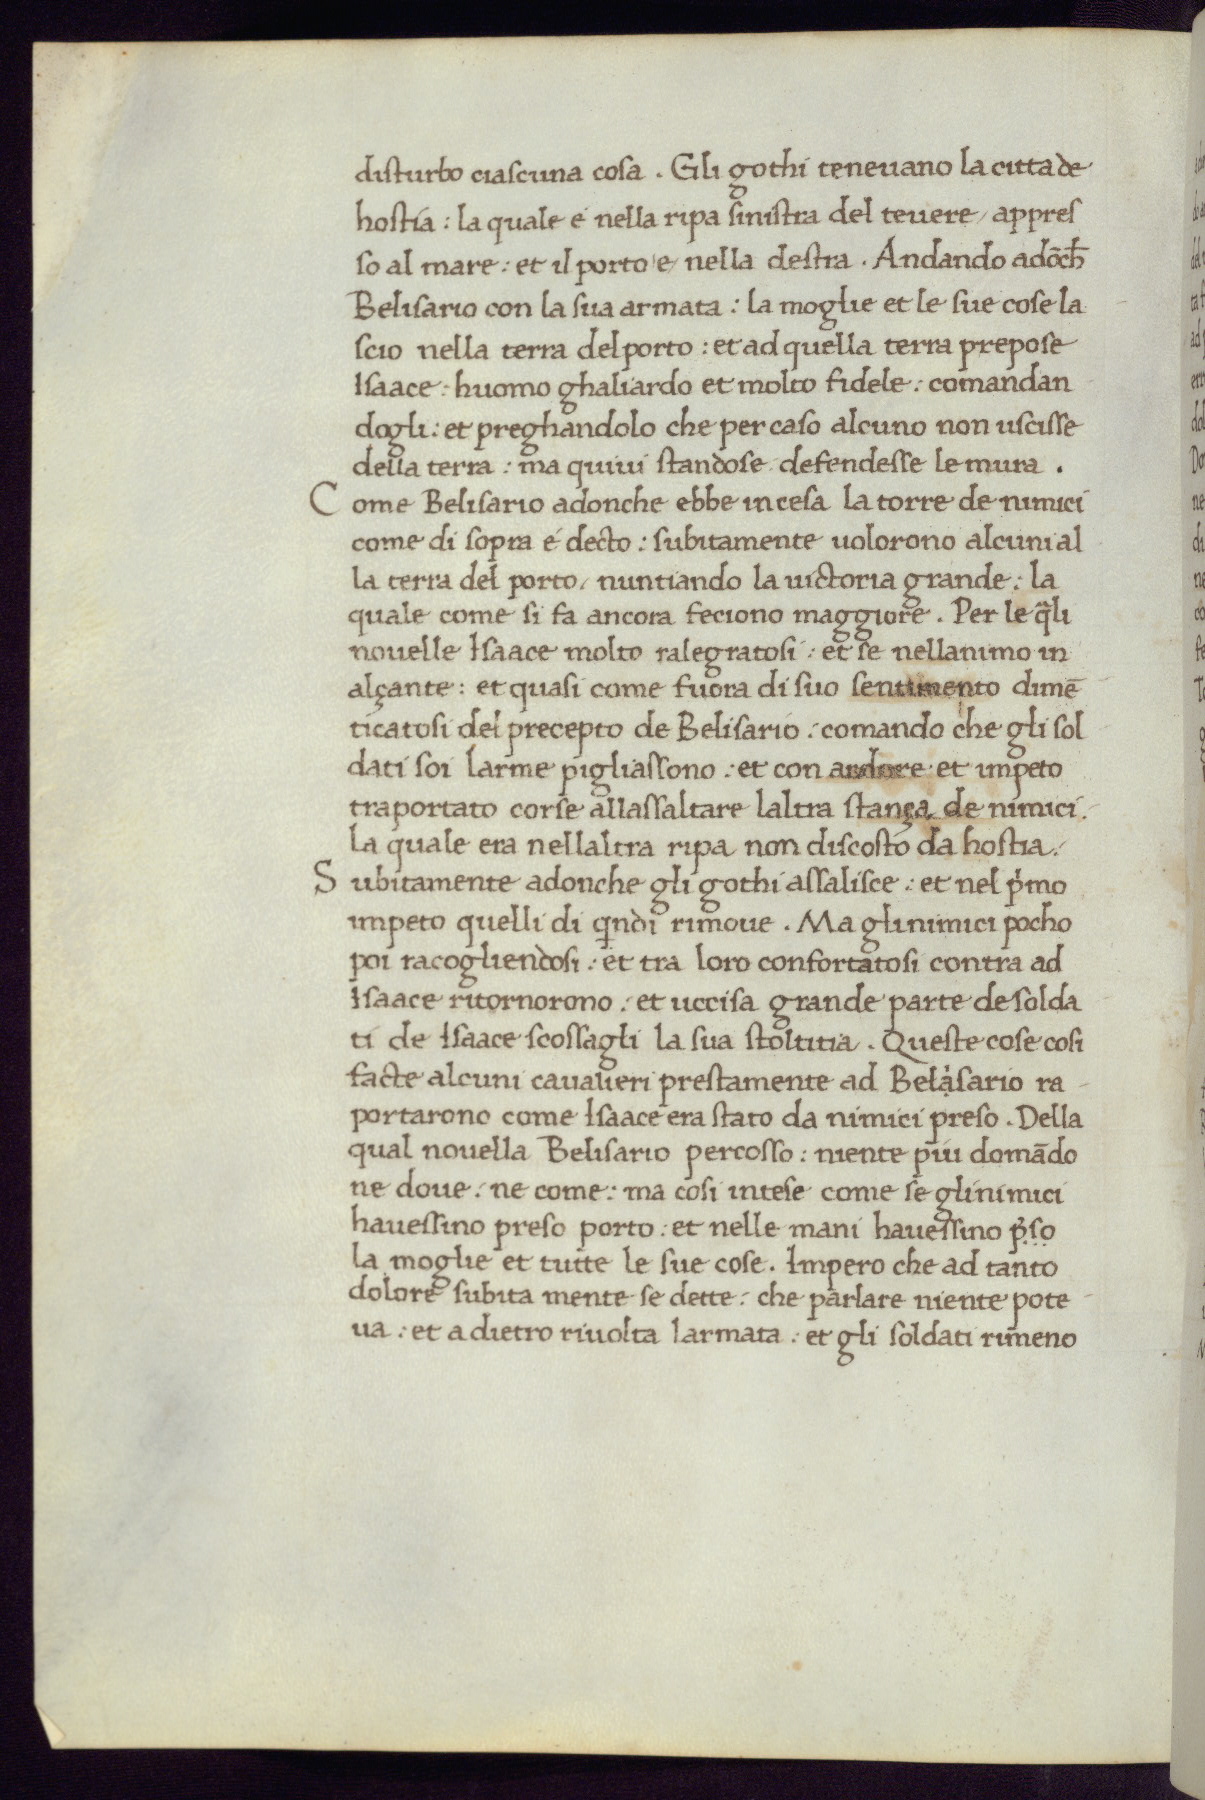 disturbo ciascuna cosa . Gli gothi tenevano la citta de
hostia : la quale é nella ripa sinistra del tevere / appres
so al mare : et il porto e nella destra . Andando adōch̄
Belisario con la sua armata : la moglie et le sue cose la
scio nella terra del porto : et ad quella terra prepose
Isaace : huomo ghaliardo et molto fidele : comandan
dogli : et preghandolo che per caso alcuno non uscisse
della terra : ma quivi standose defendesse le mura .
Come Belisario adonche ebbe incesa la torre de nimici
come di sopra é decto : subitamente uolorono alcuni al
la terra del porto / nuntiando la uictoria grande : la
quale come si fa ancora feciono maggiore . Per le q̄li
nouelle Isaace molto ralegratosi : et se nellanimo in
alçante : et quasi come fuora di suo sentimento dimē
ticatosi del precepto de Belisario : comando che gli sol
dati soi larme pigliassono : et con ardore et impeto
traportato corse allassaltare laltra stança de nimici .
La quale era nellaltra ripa non discosto da hostia .
Subitamente adonche gli gothi assalisce : et nel p̓mo
impeto quelli di q̄ndi rimoue . Ma glinimici pocho
poi racogliendosi : et tra loro confortatosi contra ad
Isaace ritornorono : et uccisa grande parte de solda
ti de Isaace scossagli la sua stoltitia . Queste cose cosi
facte alcuni cavalieri prestamente ad Belạ̇sario ra-
portarono come Isaace era stato da nimici preso . Della
qual nouella Belisario percosso : niente piu domādo
ne doue : ne come : ma cosi intese come se glinimici
havessino preso porto : et nelle mani havessino p̓so
la moglie et tutte le sue cose . Impero che ad tanto
dolore subita mente se dette : che parlare niente pote
ua : et a dietro rivolta larmata : et gli soldati rimeno